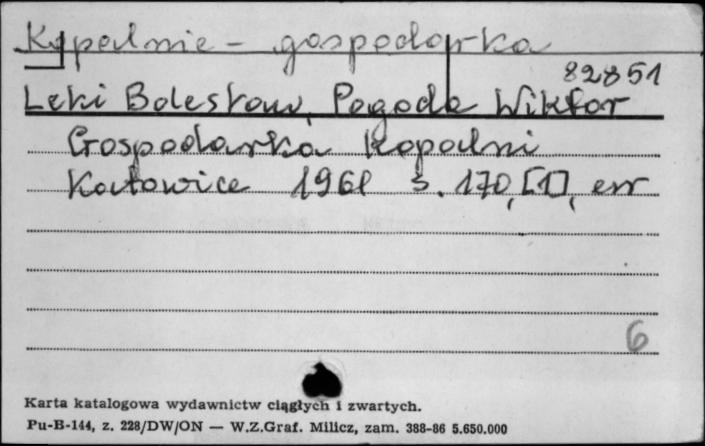 Kopalnie - gospodarka
82851
Łęki Bolesław, Pogoda Wiktor
Gospodarka Kopalni
Katowice 1961 s. 170, [1], err
6
Karta katalogowa wydawnictw ciągłych i zwartych.
Pu-B-144, z. 228/DW/ON — W.Z.Graf. Milicz, zam. 388-86 5.650.000